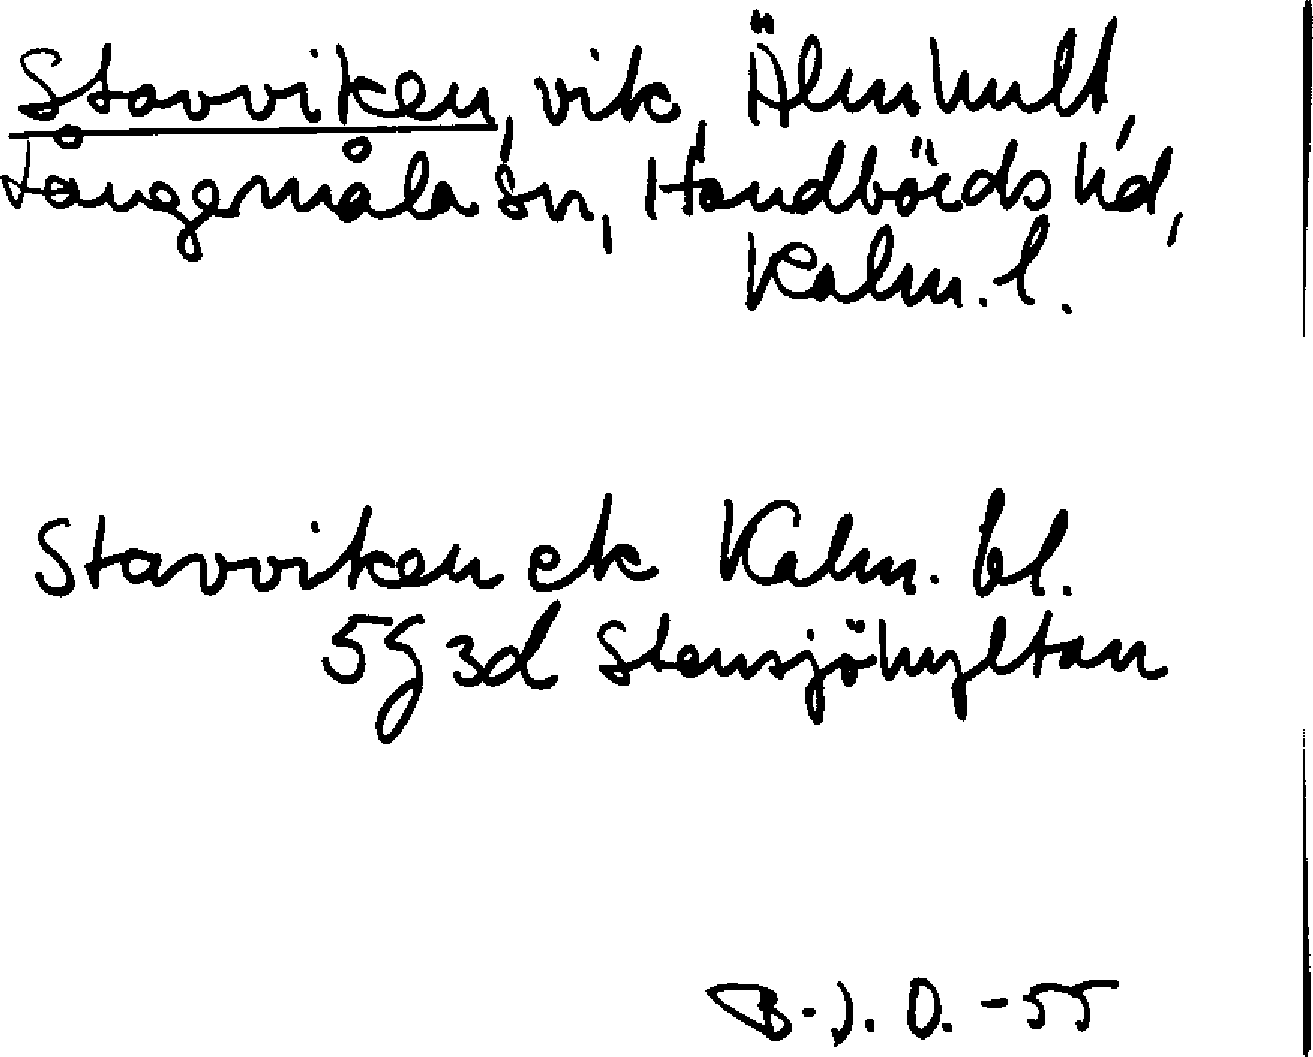 Stavviken, vik, Älmhult,
Långemåla sn, Handbörds hd,
Kalm. l.
Stavviken ek Kalm. bl.
5g3d Stensjöhyltan
B.-J. O. -55